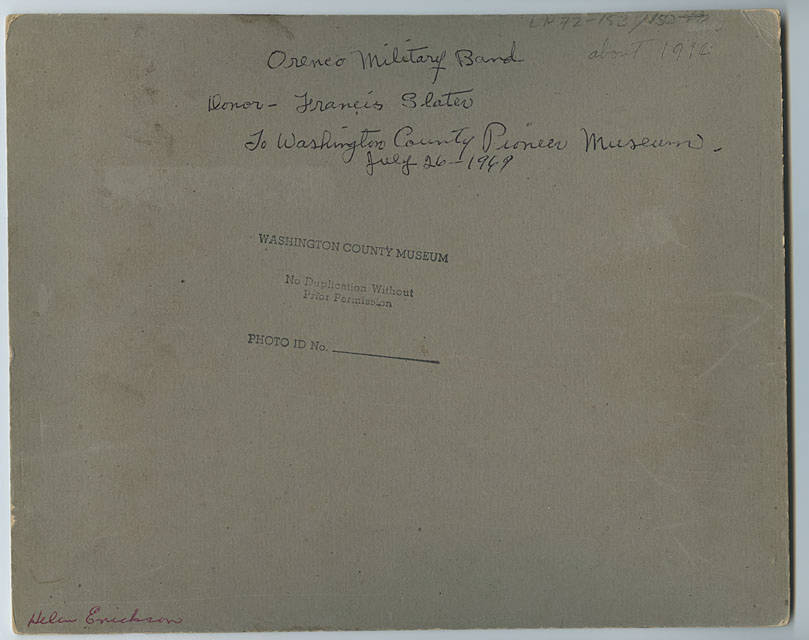 about 1912
Orenco Military Band
Donor - Francis Slater
To Washington County Pioneer Museum -
July 26 - 1969
WASHINGTON COUNTY MUSEUM
No Duplication Without
Prior Permission
PHOTO ID No.
Helen Erickson